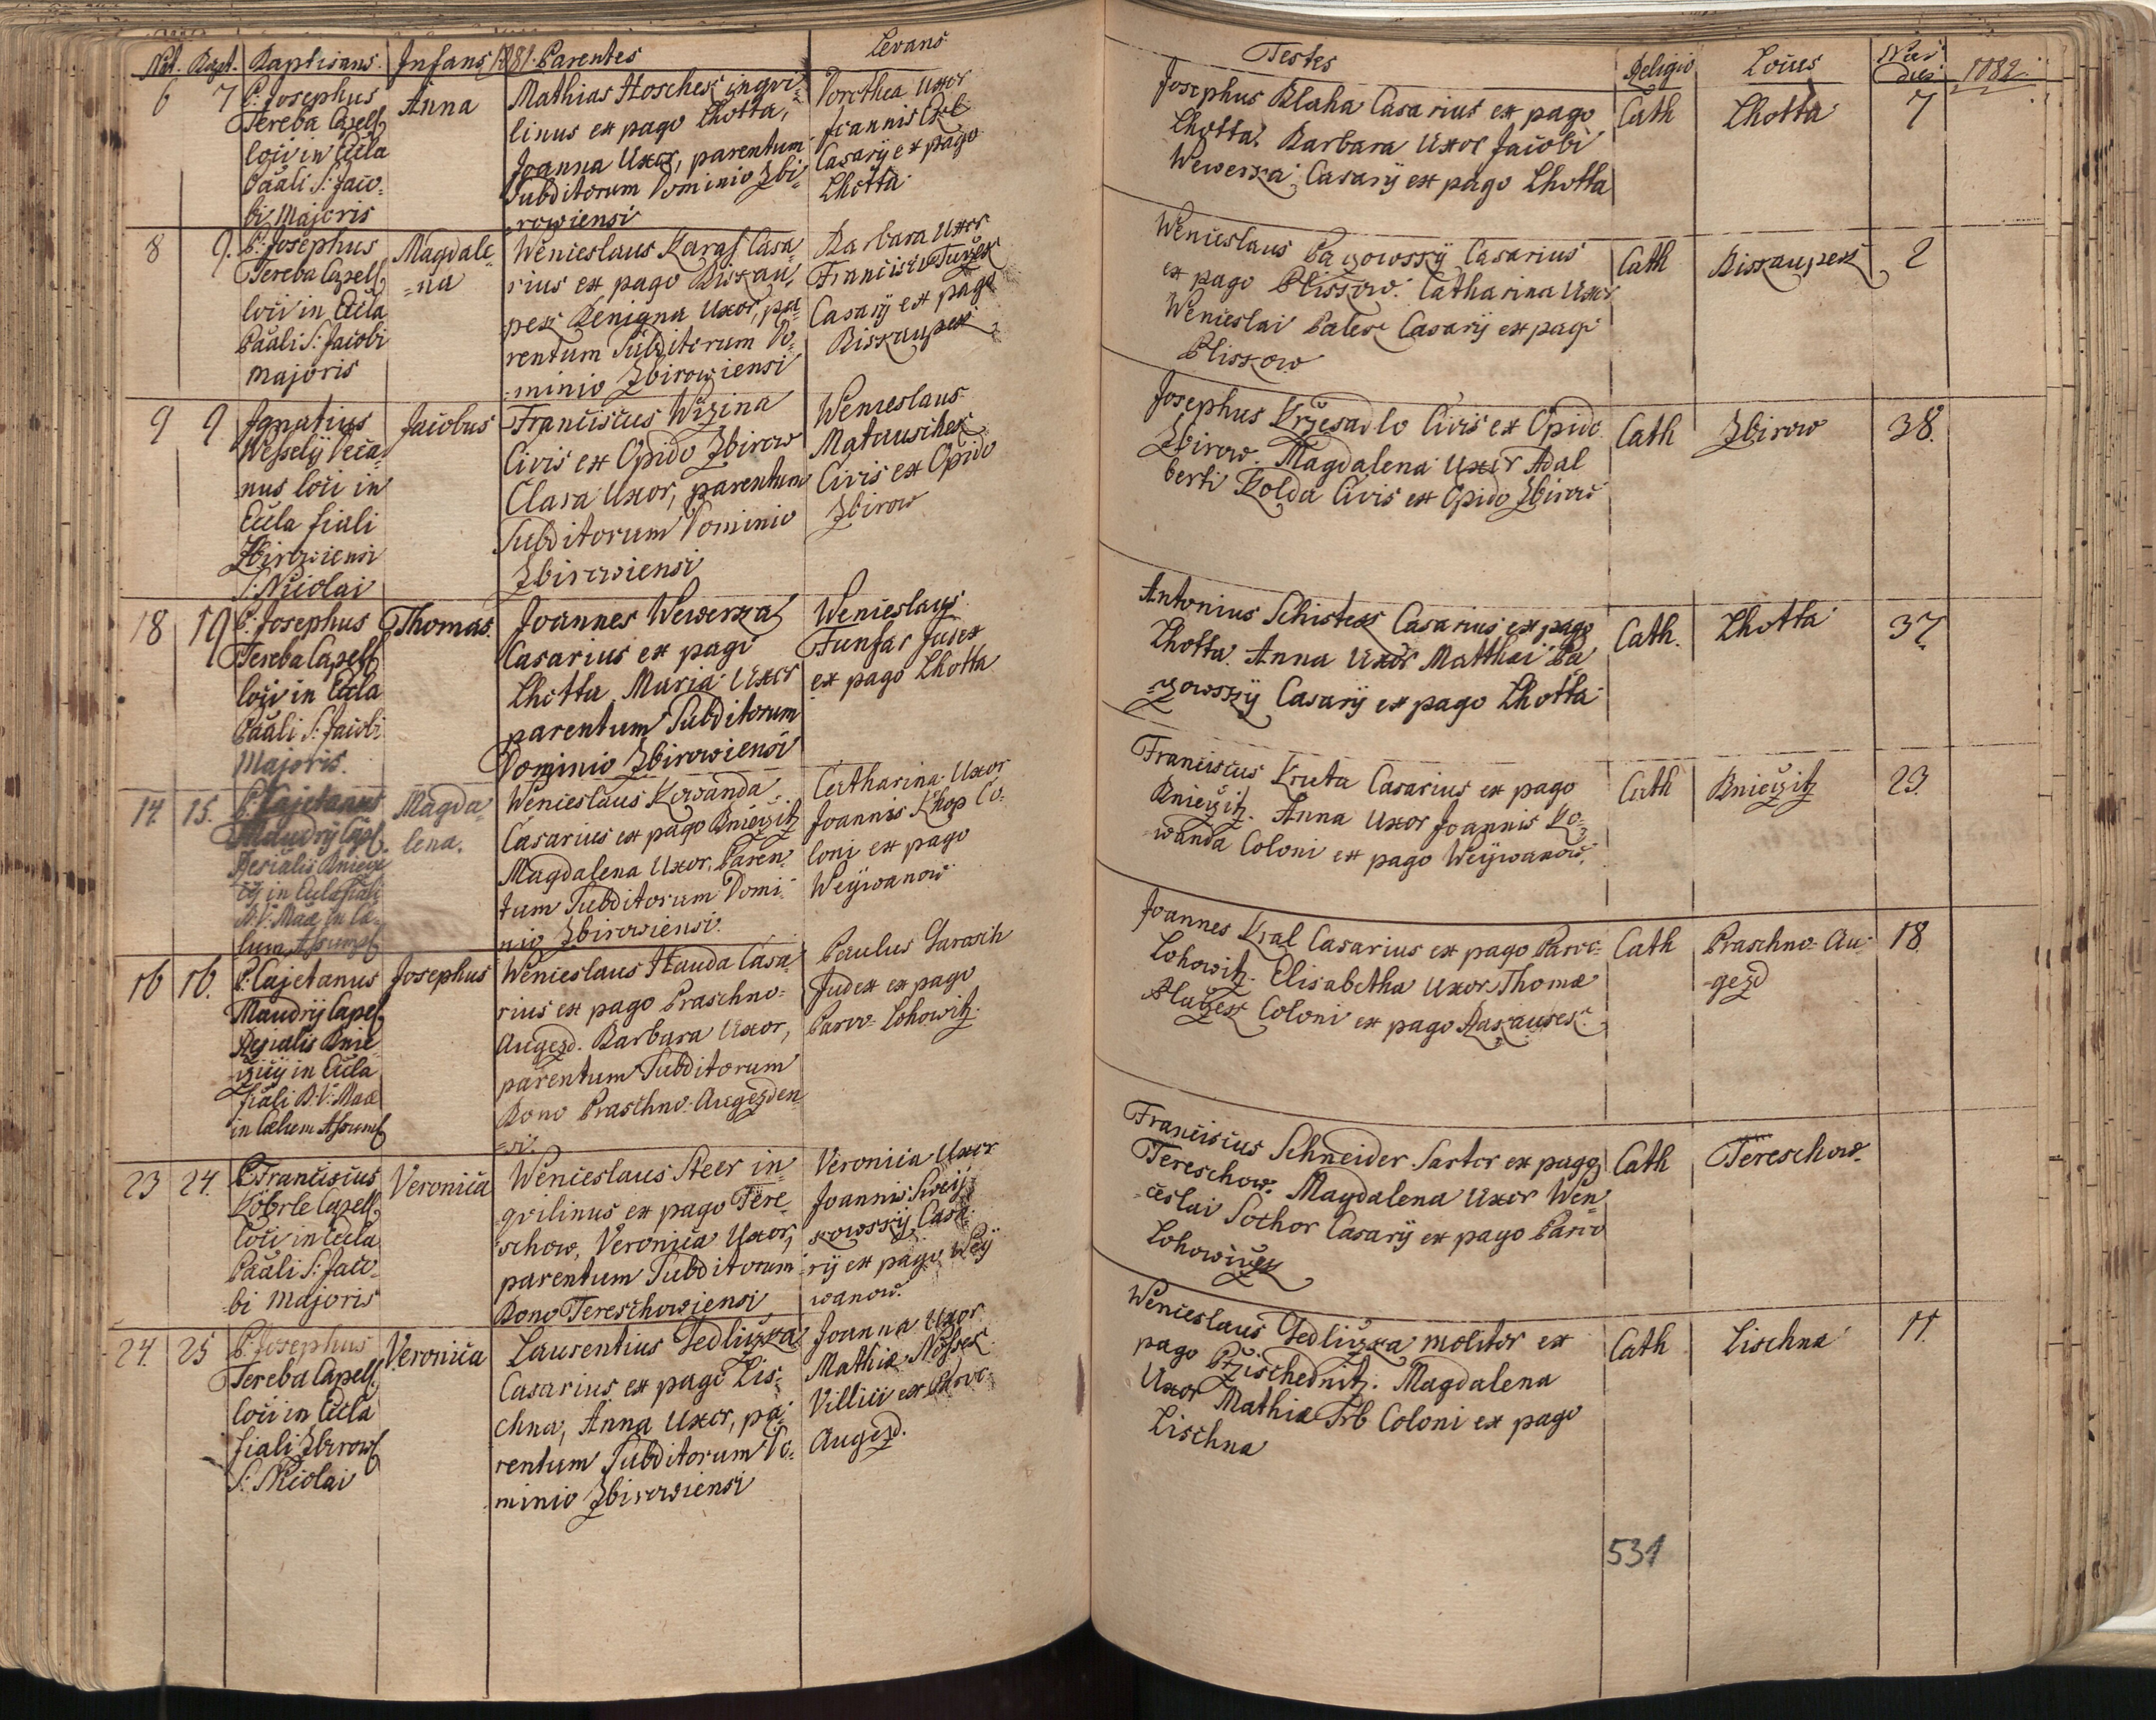 Nat. Bapt. Baptisans. Infans 1781. Parentes Levans
6 7 P: Josephus
Tereba Capell.
loci in Eccla
Paali S: Jaco=
bi Majoris
Anna
Mathias Hoschek inqvi=
linus ex pago Lhotta,
Joanna Uxor, parentum
Subditorum Dominio Zbi=
rowiensi
Dorothea Uxor
Joannis
Casarij ex pago
Lhotta
8 9. P: Josephus
Tereba Capell.
loci in Eccla
Paali S: Jacobi
majoris
Magdale=
=na
Wenceslaus Karas Casa=
rius ex pago Biskau=
pek Benigna Uxor, pa=
rentum Subditorum Do=
minio Zbirowiensi
Barbara Uxor
Francisci Turek
Casarij ex pago
Biskaupek
9 9 Ignatius
Wesselij Deca=
nus loci in
Eccla fiali
Zbirowiensi
S: Nicolai
Jacobus
Franciscus Wizina
Civis ex Opido Zbirow
Clara Uxor, parentum
Subditorum Dominio
Zbirowiensi
Wenceslaus
Matauschek
Civis ex Opido
Zbirow
18 19 P: Josephus
Tereba Capell.
loci in Eccla
Paali S: Jacobi
Majoris.
Thomas.
Joannes Wewerka
Casarius ex pago
Lhotta Maria Uxor
parentum Subditorum
Dominio Zbirowiensi
Wenceslaus
Funfar Judex
ex pago Lhotta
14 15. P. Cajetanus
Maudrij Capl.
in Eccla fiali
B: V: Maae in Cæ=
lum Assumpt.
Magda=
lena.
Wenceslaus Kowanda
Casarius ex pago Bniczitz
Magdalena Uxor, Paren=
tum Subditorum Domi=
nio Zbirowiensi.
Catharina Uxor
Joannis Khop Co=
loni ex pago
Weijwanow
16 16. P: Cajetanus
Maudrij Capel.
in Eccla
fiali B: V: Maae
in Cælum Assumt.
Josephus
Wenceslaus Hauda Casa=
rius ex pago Praschno=
Augezd. Barbara Uxor,
parentum Subditorum
Bono Praschno-Augezden=
=si.
Paulus Tarasch
Judex ex pago
Parvo-Lohowitz.
23 24. P. Franciscus
Köbrle Capell.
loci in Eccla
Paali S: Jaco=
=bi majoris
Veronica
Wenceslaus Steer in=
=qvilinus ex pago Tere=
schow, Veronica Uxor,
parentum Subditorum
Bono Tereschowiensi
Veronica Uxor
Joannis Sweij=
kowskij Casa=
rij ex pago Weij
wanow.
24. 25 P. Josephus
Tereba Capell.
loci in Eccla
fiali Zbirow.
S: Nicolai
Veronica
Laurentius Sedliczka
Casarius ex pago Lis=
chna, Anna Uxor, pa=
rentum Subditorum Do=
minio Zbirowiensi
Joanna Uxor
Mathiæ
Villici ex Parvo
Augezd.
Testes Religio Locus Nrus dus 1782.
Josephus Blaha Casarius ex pago
Lhotta. Barbara Uxor Jacobi
Wewerka Casarij ex pago Lhotta
Cath Lhotta 7
Wenceslaus Pazowskij Casarius
ex pago Plisskow. Catharina Uxor
Wenceslai Palese Casarij ex pago
Plisskow
Cath Biskaupek 2
Josephus Krzesadlo Civis ex Opido
Zbirow. Magdalena Uxor Adal
berti Kolda Civis ex Opido Zbirow
Cath Zbirow 38.
Antonius Schistek Casarius ex pago
Lhotta. Anna Uxor Matthæi Pa
=zowskij Casarij ex pago Lhotta
Cath. Lhotta 37.
Franciscus Kruta Casarius ex pago
Bniczitz. Anna Uxor Joannis Ko=
=wanda Coloni ex pago Weijwanow.
Cath Bniczitz 23.
Joannes Kral Casarius ex pago Parvo-
Lohowitz. Elisabetha Uxor Thomæ
Blažek Coloni ex pago
Cath Praschno-Au=
=gezd 18.
Franciscus Schneider Sartor ex pago
Tereschow. Magdalena Uxor Wen=
=ceslai Sochor Casarij ex pago Parvo
Lohowiczek
Cath Tereschow.
Wenceslaus Sedliczka molitor ex
pago Przischednitz. Magdalena
Uxor Mathiæ Srb Coloni ex pago
Lischna
Cath Lischna 11.
531